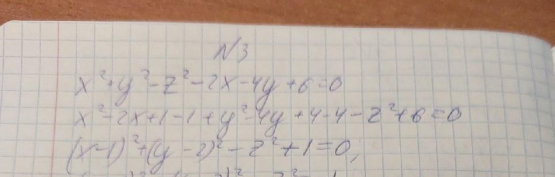 N3
x²+y²-z²-2x-4y+6=0
x²-2x+1-1+y²-4y+4-4-z²+6=0
(x-1)²+(y-2)²-z²+1=0,